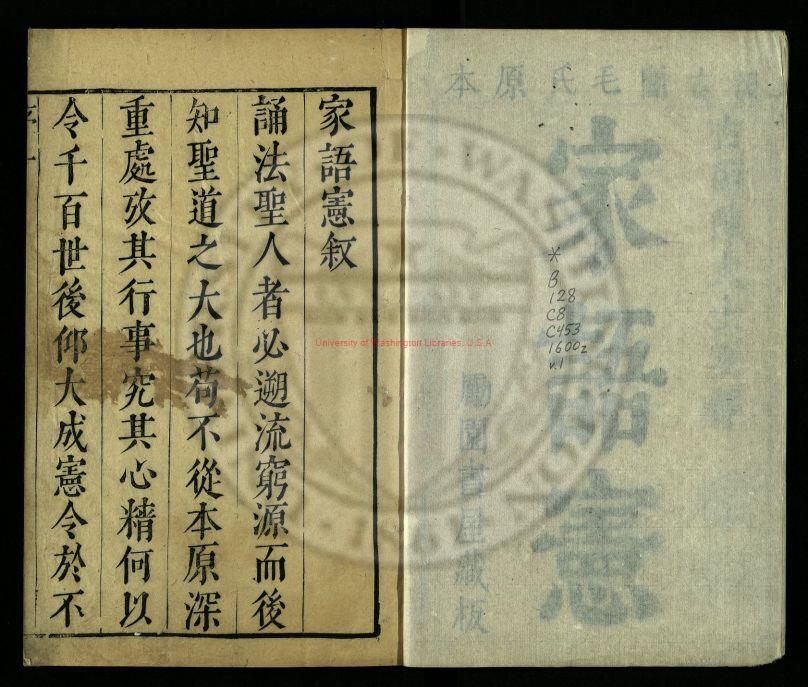 本原氏毛
家語憲
勵園書屋藏板
*
B
128
C8
C453
1600z
v.1
University of Washington Libraries, U.S.A
家語憲叙
誦法聖人者必遡流窮源而後
知聖道之大也苟不從本原深
重處攷其行事究其心精何以
令千百世後仰大成憲令於不